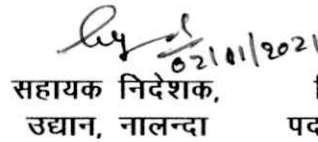 02/01/2021
सहायक निदेशक,
उद्यान, नालन्दा पद